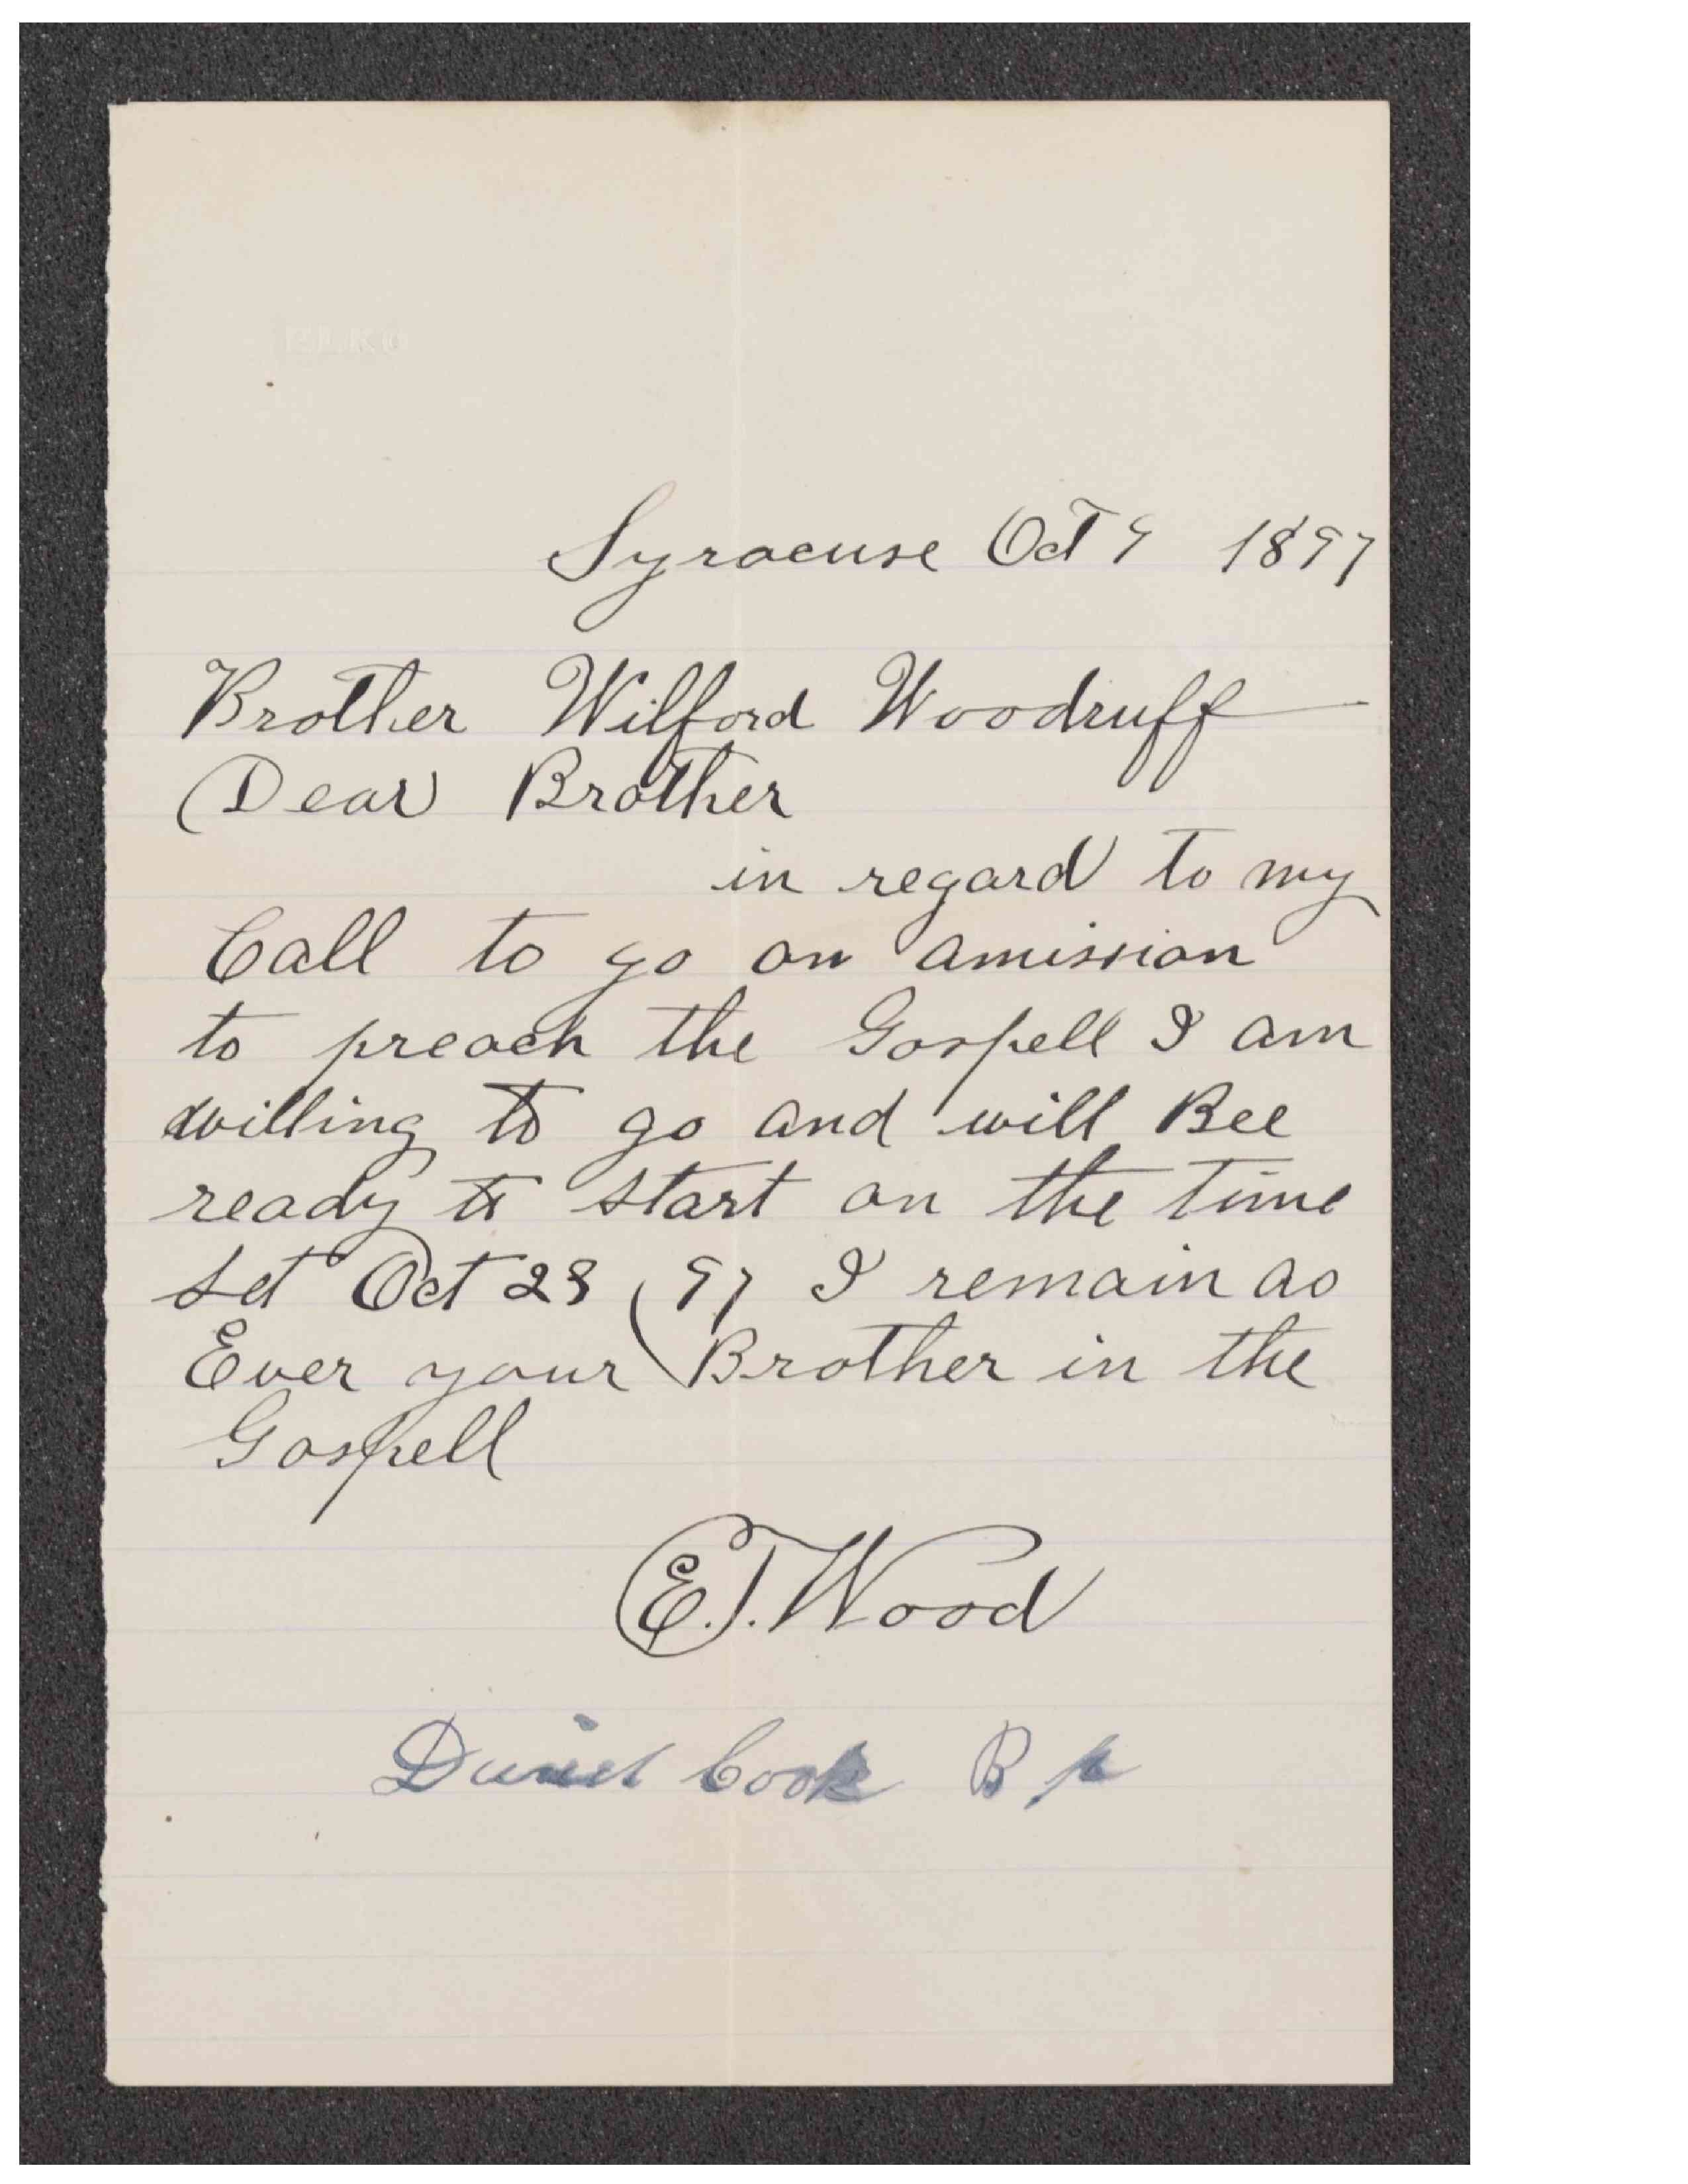 Syracuse Oct 9 1897
Brother Wilford Woodruff
Dear Brother
in regard to my
Call to go on amission
to preach the Gospell I am
willing to go and will Bee
ready to start on the time
set Oct 28 97 I remain as
Ever your Brother in the
Gospell
E.T. Wood
Daniel Cook Bp